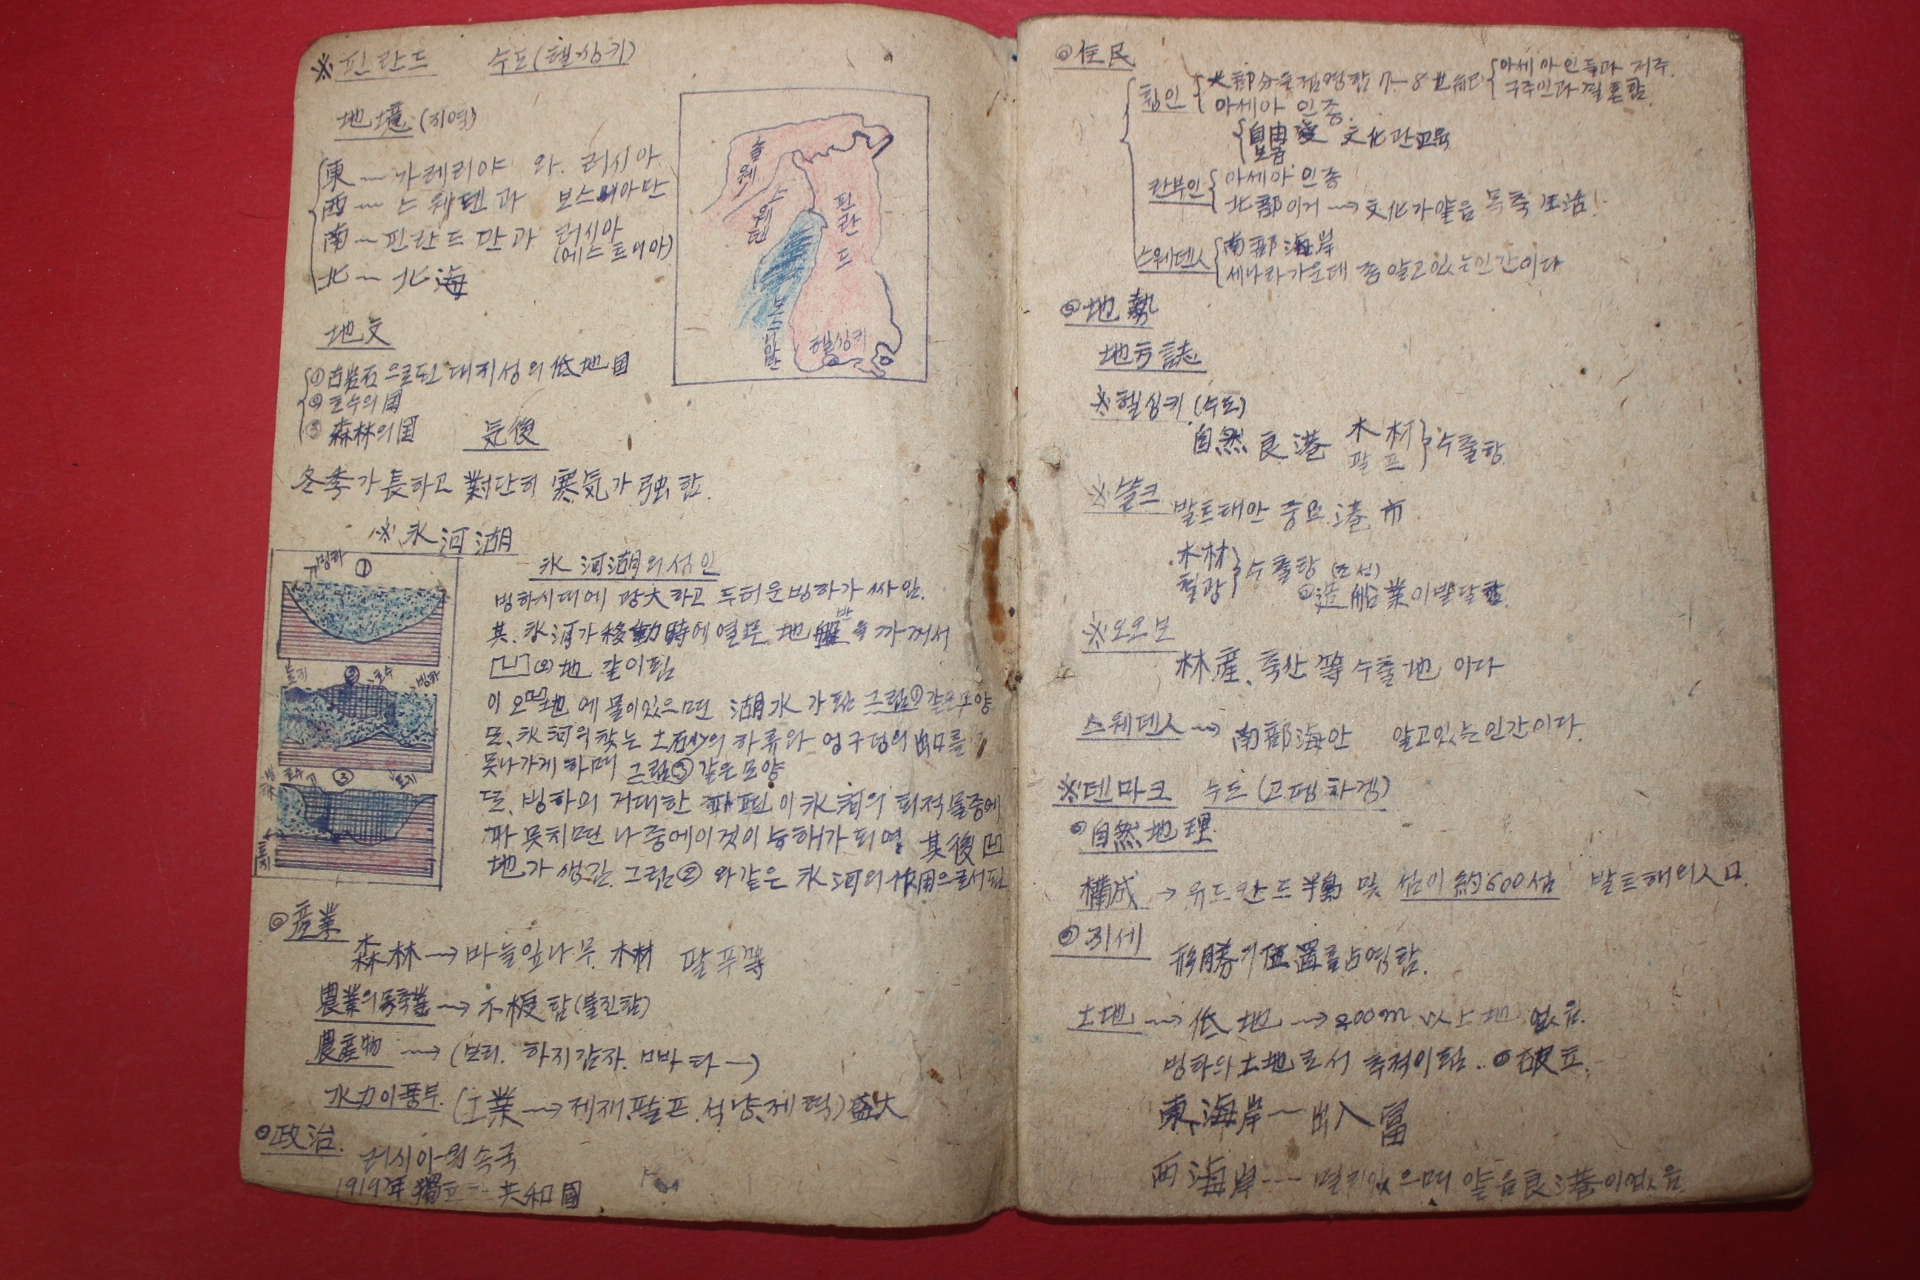 ※ 핀란드 수도(헬싱키)
地境 (지역)
東 ― 가레리야 와 러시아
西 ― 스웨덴과 보스니아만
南 ― 핀란드만과 러시아
(에스토니아)
北 ― 北海
놀웨
스웨덴
핀란드
보스니아만
헬싱키
地文
① 古岩石으로된 대지성의 低地国
② 호수의国
③ 森林의国
気侯
冬季가 長하고 對단히 寒気가 强함.
※ 氷河湖
빙하 ①
② 호수 빙하
호수 ③ 토지
氷河湖의 성인
빙하시대에 광大하고 두터운빙하가 싸임.
其. 氷河가 移動時에 열푼 地盤을 까꺼서
반
凹(요)地 같이됨
이 요凹地에 물이있으면 湖水가됨 그림① 같은모양
또, 氷河의 찾는 土石砂의 하류와 엉구덩의 出口를
못나가게 하며 그림③ 같은모양
또, 빙하의 거대한 파편이 氷河의 퇴적물중에
파뭇치면 나중에이것이 능해가 되면 其後 凹
地가 생김. 그림② 와같은 氷河의 作用으로서됨
◎ 産業
森林 → 바늘잎나무 木材 팔푸等
農業의 牧축業 → 不振함(불진함)
農産物 → (보리. 하지감자. 마바라―)
水力이풍부. (工業 → 제재.팔프.석냥.제력) 盛大
◎ 政治.
러시아의 속국
1919年 獨立 ― 共和国
◎ 住民
힌인
大部分을점영함 7―8世紀
아세아인들과 거주.
구주민과 결혼함.
아세아 인종.
自由愛 文化관교육
란부인
아세아인종
北部이거 → 文化가얕음 목축生活!
스웨덴人
南部海岸
세나라가운데 좀 알고있는인간이다
◎ 地勢
地方誌
※ 헬싱키 (수도)
自然良港 木材
팔프 수출항.
※ 쏠크 발트해안 중요 港市.
木材
철광 수출항 (조선)
◎ 造船業이발달함.
※ 오오보
林産、축산 等 수출地 이다
스웨덴人 → 南部海안 알고있는인간이다.
※ 덴마크 수도 (고펜하겐)
◎ 自然地理.
構成 → 유드란드半島 및 섬이 約600섬 발트해의入口.
◎ 지세
形勝기位置를占영함.
土地 → 低地 → 200m 以上地 없음.
빙하의土地로서 축적이됨. ◎ 破표.
東海岸 ― 出入富
西海岸 ― 멀리있으며 얕음良港이없음